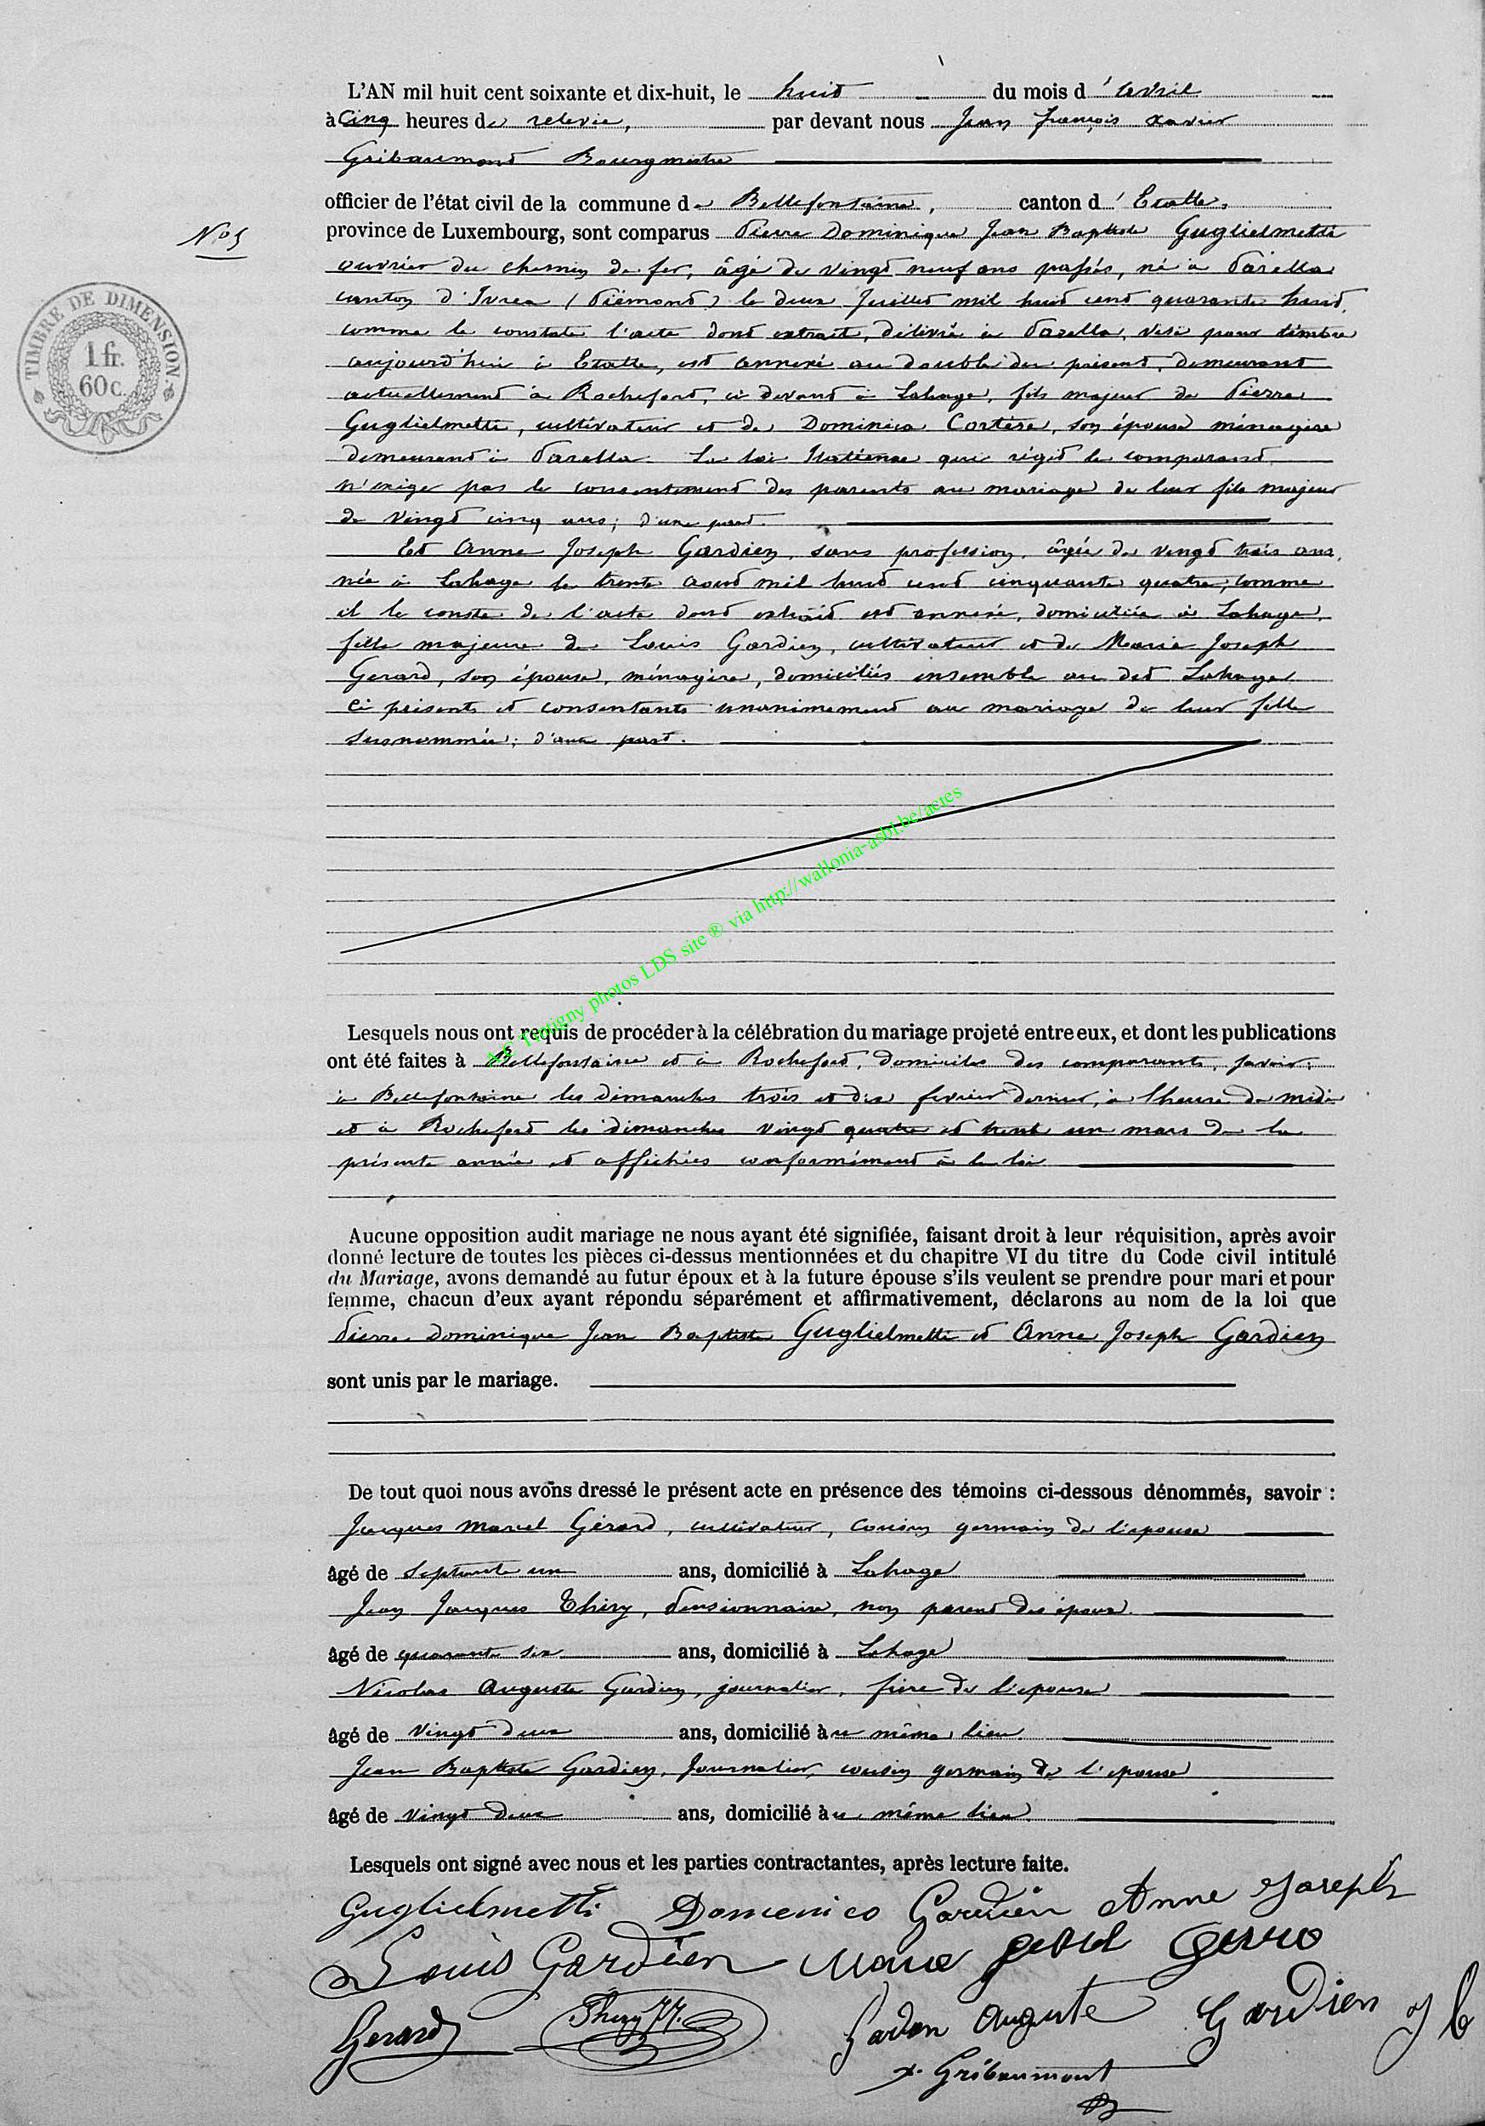 L'AN mil huit cent soixante et dix-huit, le huit du mois d'avril
à cinq heures de relevée, par devant nous Jean François Xavier
Gribaumont Bourgmestre
officier de l'état civil de la commune de Bellefontaine, canton d'Etalle,
N° 5
province de Luxembourg, sont comparus Pierre Dominique Jean Baptiste Guglielmetti
ouvrier du chemin de fer, âgé de vingt neuf ans passés, né à Parella
canton d'Ivrea (Piémont) le deux Juillet mil huit cent quarante huit,
comme le constate l'acte dont extrait, délivré à Parella, visé pour timbre
aujourd'hui à Etalle, est annexé au double du présent, demeurant
actuellement à Rochefort, ci devant à Lahage, fils majeur de Pierre
Guglielmetti, cultivateur et de Dominica Cortèse, son épouse ménagère
demeurant à Parella. La loi Italienne qui régit le comparant
n'exige pas le consentement des parents au mariage de leur fils majeur
de vingt cinq ans; d'une part.
Et Anne Joseph Gardien, sans profession, âgée de vingt trois ans,
née à Lahage le trente août mil huit cent cinquante quatre, comme
il le conste de l'acte dont extrait est annexé, domiciliée à Lahage,
fille majeure de Louis Gardien, cultivateur et de Marie Joseph
Gerard, son épouse, ménagère, domiciliés ensemble au dit Lahage
ci présents et consentants unanimement au mariage de leur fille
susnommée; d'autre part.
TIMBRE DE DIMENSION.
1 fr.
60 c.
A.C Tintigny photos LDS site ® via http://wallonia-asbl.be/actes
Lesquels nous ont requis de procéder à la célébration du mariage projeté entre eux, et dont les publications
ont été faites à Bellefontaine et à Rochefort, domiciles des comparants, savoir:
à Bellefontaine les dimanches trois et dix fevrier dernier, à l'heure de midi
et à Rochefort les dimanches vingt quatre et trente un mars de la
présente année et affichées conformément à la loi
Aucune opposition audit mariage ne nous ayant été signifiée, faisant droit à leur réquisition, après avoir
donné lecture de toutes les pièces ci-dessus mentionnées et du chapitre VI du titre du Code civil intitulé
du Mariage, avons demandé au futur époux et à la future épouse s'ils veulent se prendre pour mari et pour
femme, chacun d'eux ayant répondu séparément et affirmativement, déclarons au nom de la loi que
Pierre Dominique Jean Baptiste Guglielmetti et Anne Joseph Gardien
sont unis par le mariage.
De tout quoi nous avons dressé le présent acte en présence des témoins ci-dessous dénommés, savoir :
Jacques Marcel Gérard, cultivateur, cousin germain de l'épouse
âgé de septante un ans, domicilié à Lahage
Jean Jacques Thiry, Pensionnaire, non parent des époux.
âgé de quarante six ans, domicilié à Lahage
Nicolas Auguste Gardien, journalier, frère de l'épouse
âgé de vingt deux ans, domicilié au même lieu.
Jean Baptiste Gardien, Journalier, cousin germain de l'épouse
âgé de vingt deux ans, domicilié au même lieu.
Lesquels ont signé avec nous et les parties contractantes, après lecture faite.
Guglielmetti Domenico Gardien Anne Joseph
Louis Gardien Marie
Gerard Thiry JJ. Auguste Gardien J b
x. Gribaumont